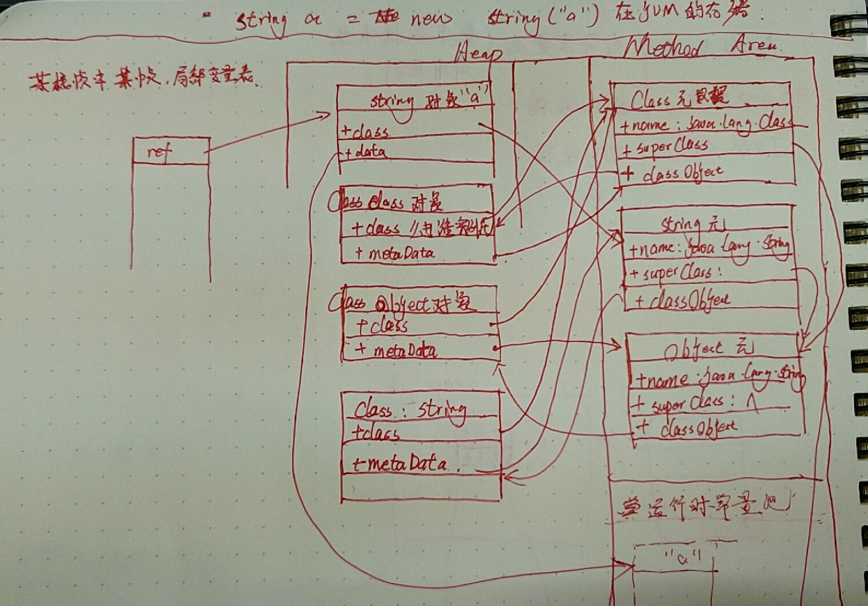 string a = new string("a") 在JVM的存储.
Heap
Method Area.
某栈侦中某侦,局部变量表.
ref
string 对象"a"
+class
+data
Class class 对象
+class
+ metaData
Class Object 对象
+class
+ metaData
Class : string
+class
+metaData
Class 元数据
+name: java.lang.Class
+ superClass
+ classObject
string 元
+name: java.lang.String
+ superClass:
+ classObject
Object 元
+name: java.lang.string
+ superClass: ^
+ classObject
运行时常量池
"a"